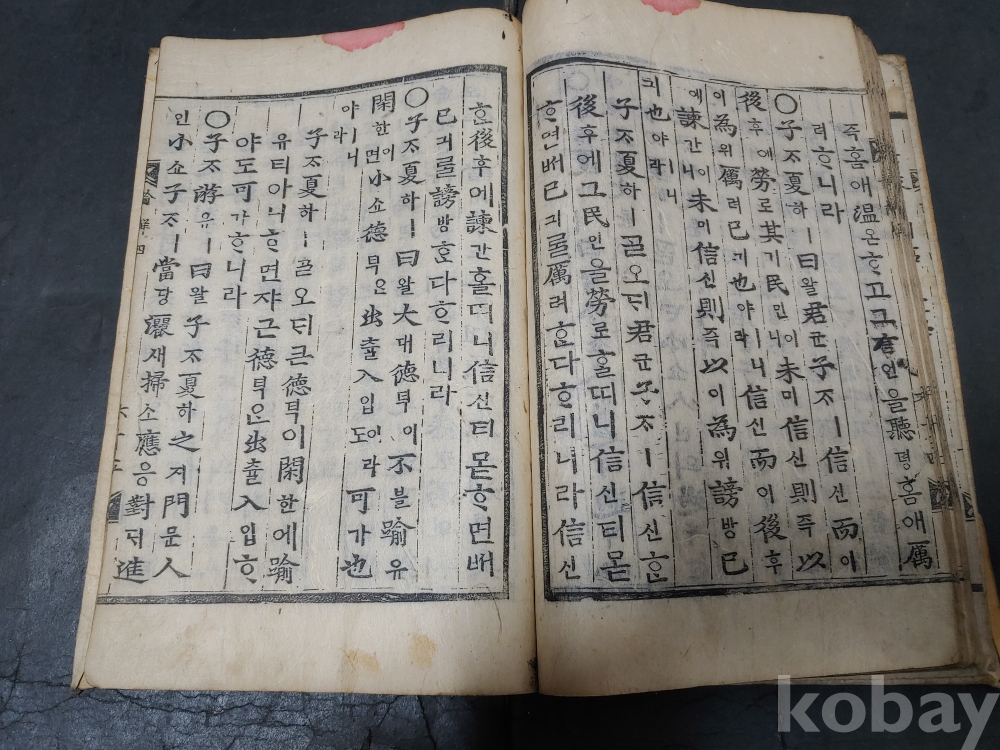 즉홈애溫온ᄒᆞ고그言언을聽텽홈애厲
려ᄒᆞ니라
○子ᄌᆞ夏하ㅣ曰왈君군子ᄌᆞㅣ信신而이
後후에勞로其기民민니이未미信신則즉以
이為위厲려己기也야ㅣ니라信신而이後후
에諫간이니未미信신則즉以이為위謗방己
긔也야ㅣ니라
子ᄌᆞ夏하ㅣᄀᆞᆯ오ᄃᆡ君군子ᄌᆞㅣ信신ᄒᆞᆫ
後후에그民민을勞로홀띠니信신티몯
ᄒᆞ면ᄡᅥ己긔ᄅᆞᆯ厲려ᄒᆞᆫ다ᄒᆞ리니라信신
ᄒᆞᆫ後후에諫간홀띠니信신티몯ᄒᆞ면ᄡᅥ
己긔ᄅᆞᆯ謗방ᄒᆞᆫ다ᄒᆞ리니라
○子ᄌᆞ夏하ㅣ曰왈大대德덕이不블踰유
閑한이면小쇼德덕은出츌入입이라도可가也
야ㅣ니라
子ᄌᆞ夏하ㅣᄀᆞᆯ오ᄃᆡ큰德덕이閑한에踰
유티아니ᄒᆞ면쟈근德덕은出츌入입ᄒᆞ
야도可가ᄒᆞ니라
○子ᄌᆞ游유ㅣ曰왈子ᄌᆞ夏하之지門문人
인小쇼子ᄌᆞㅣ當당灑새掃소應응對ᄃᆡ進
kobay